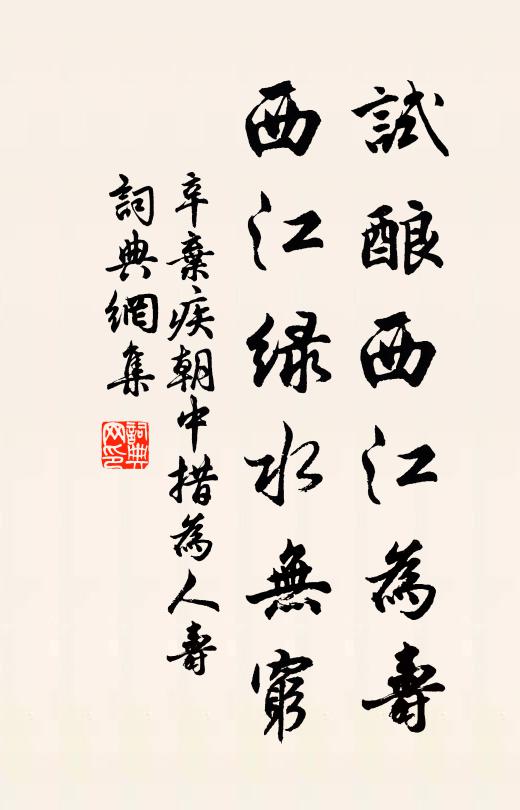 試酿西江為壽
西江緑水無窮
辛棄疾朝中措為人壽
詞典網集
詞典
网印